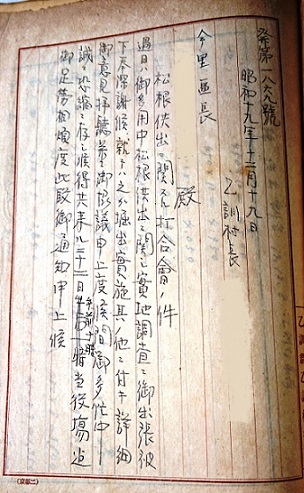 発第一八六九號
昭和十九年十二月十九日
乙訓村長
今里區長
殿
松根供出ニ関スル打合會ノ件
過日ハ御多用中松根供出ニ関シ實地調査ニ御出張被
下奉深謝候、就テハ之ガ掘出實施其ノ他ニ付キ詳細
御意見拝聴並ニ御協議申上度候間御多忙中
誠ニ恐縮ニ存ジ候得共来ル二十二日午前十時当役場迄
御足労相煩度此段御通知申上候
(京都二)